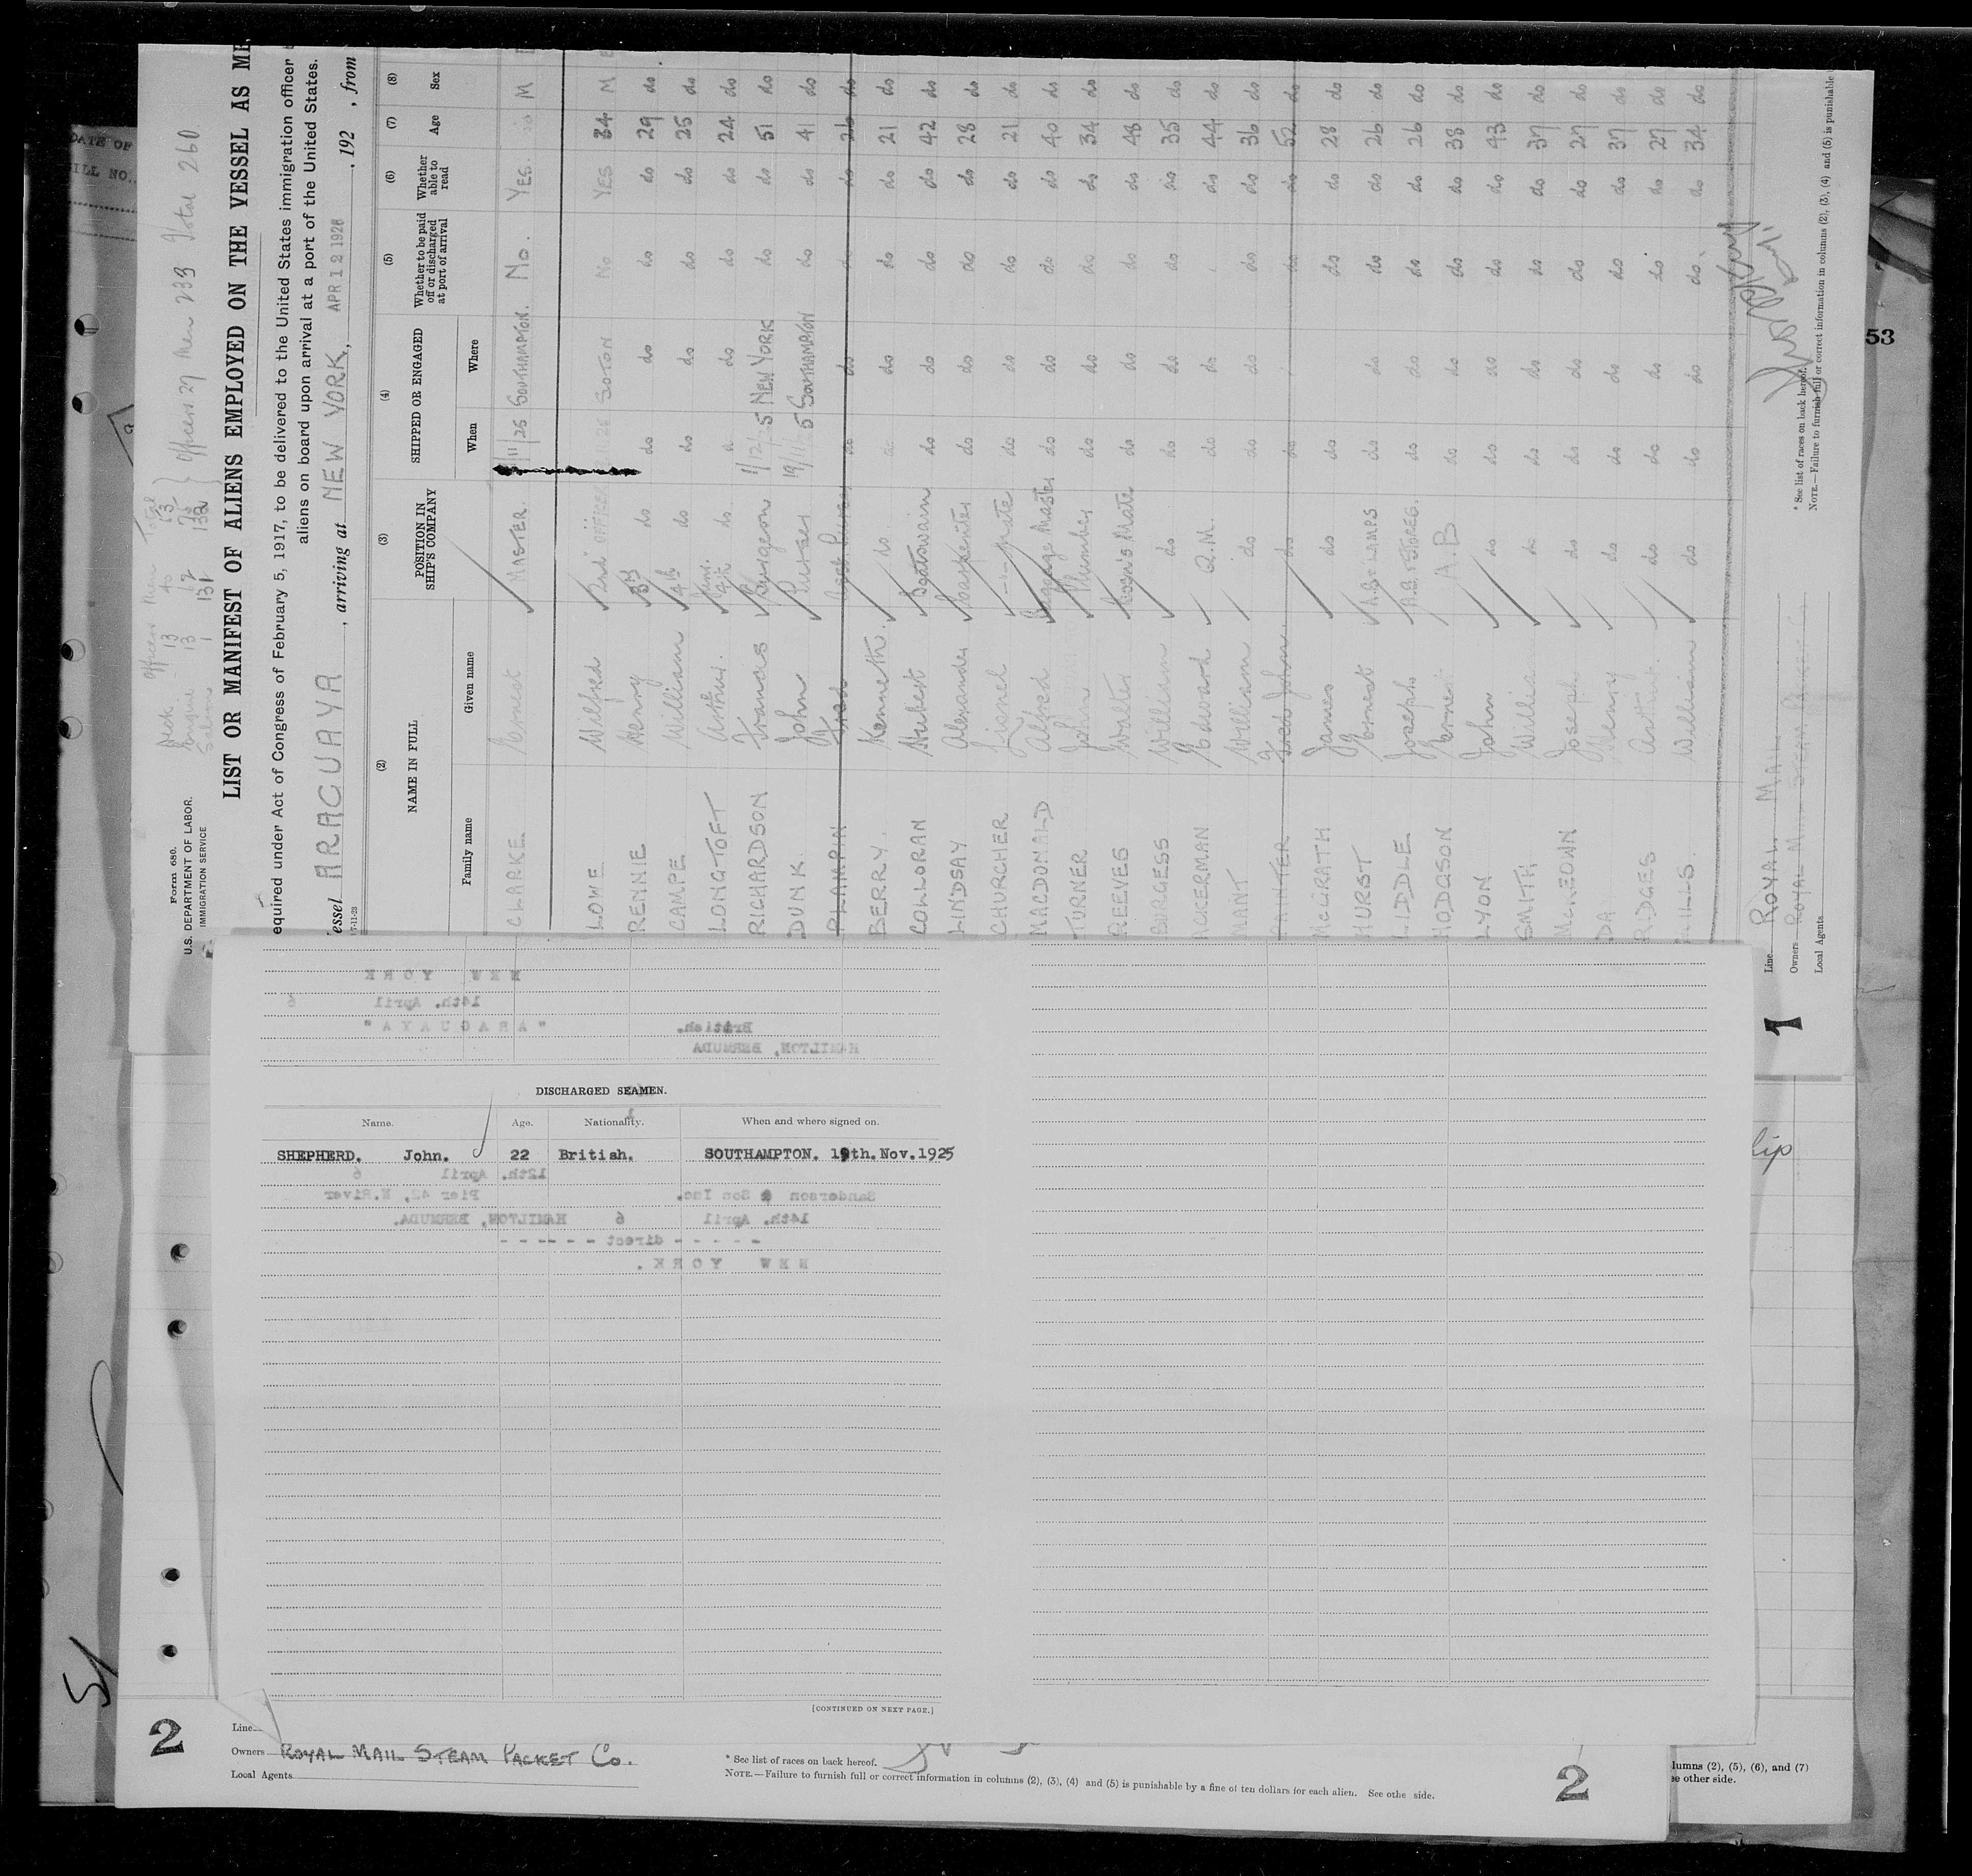 Form 680.
U.S. DEPARTMENT OF LABOR.
IMMIGRATION SERVICE
Officers 27 Men 233 Total 260
LIST OR MANIFEST OF ALIENS EMPLOYED ON THE VESSEL AS ME
equired under Act of Congress of February 5, 1917, to be delivered to the United States immigration officer
aliens on board upon arrival at a port of the United States.
essel ARAGUAYA, arriving at NEW YORK, APR 12 1926, 192 , from
(2) (3) (4) (5) (6) (7) (8)
NAME IN FULL POSITION IN SHIP'S COMPANY SHIPPED OR ENGAGED Whether to be paid off or discharged at port of arrival Whether able to read Age Sex
Family name Given name When Where
CLARKE. Ernest MASTER. /11/25 SOUTHAMPTON. No. YES. M
LOWE Wilfred 2nd OFFICER SOTON No YES 34 M
RENNIE Henry 3rd do do do do do 29 do
CAMPE William 4th do do do do do 25 do
LONGTOFT Arthur. do. do do do 24 do
RICHARDSON Francis Surgeon NEW YORK do do 51 do
DUNK. John Purser 19/11/25 SOUTHAMPTON do do 41 do
PLAMPIN Fred do do do do 26 do
BERRY. Kenneth. do do do do do 21 do
COLLORAN Hubert Boatswain do do do do 42 do
LINDSAY Alexander Carpenter do do do do 28 do
CHURCHER Lionel -"- mate do do do do 21 do
MACDONALD Alfred Baggage Master do do do do 40 do
TURNER John Plumber do do do do 34 do
REEVES Walter Bosn's Mate do do do do 48 do
BURGESS William do do do do do 35 do
ACKERMAN Edward Q.M. do do do 44 do
MANT William do do do do 36 do
PAINTER Fred John do do do do 52 do
McGRATH James do do do do 28 do
HURST Ernest A.B. & LAMPS do do do do 26 do
LIDDLE Joseph A.B. STORES. do do do do 26 do
HODGSON Ernest A.B do do do do 38 do
LYON John do do do do do 43 do
SMITH William do do do do do 37 do
McKEOWN Joseph do do do do do 27 do
DA Henry do do do do do 37 do
RIDGES Arthur do do do do do 27 do
MILLS. William do do do do do 34 do
Line ROYAL MAIL
Owners ROYAL M STEAM PACKET Co
Local Agents
* See list of races on back hereof.
NOTE.—Failure to furnish full or correct information in columns (2), (3), (4) and (5) is punishable
1
53
DATE OF
ILL NO.
NEW YORK
14th. April 6
"ARAGUAYA"
British.
HAMILTON, BERMUDA
DISCHARGED SEAMEN.
Name. Age. Nationality. When and where signed on.
SHEPHERD. John. 22 British. SOUTHAMPTON. 19th.Nov.1925
12th. April 6
Pier 42, N.River
Sanderson & Son Inc.
14th. April 6 HAMILTON, BERMUDA.
- - - - - direct - - - - -
NEW YORK.
[CONTINUED ON NEXT PAGE.]
2
Line
Owners ROYAL MAIL STEAM PACKET Co.
Local Agents
* See list of races on back hereof.
NOTE.—Failure to furnish full or correct information in columns (2), (3), (4) and (5) is punishable by a fine of ten dollars for each alien. See othe side.
2
lumns (2), (5), (6), and (7)
ee other side.